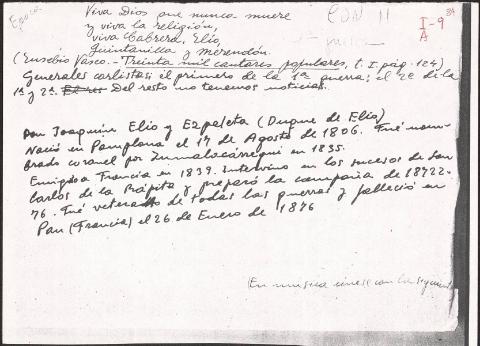 Viva Dios que nunca muere
y viva la religión,
viva Cabrera, Elío,
Quintanilla y Merendón.
(Eusebio Vasco.- Treinta mil cantares populares, t. I. pág. 124)
Generales carlistas; el primero de la 1ª guerra; el 2º de la
1ª y 2ª. Del resto no tenemos noticias.
I-9
A
Don Joaquín Elío y Ezpeleta (Duque de Elío)
Nació en Pamplona el 17 de Agosto de 1806. Fué nom-
brado coronel por Zumalacárregui en 1835.
Emigró a Francia en 1839. Intervino en los sucesos de San
Carlos de la Rápita y preparó la campaña de 1872-
76. Fué veterano de todas las guerras y falleció en
Pau (Francia) el 26 de Enero de 1876
(En música con la